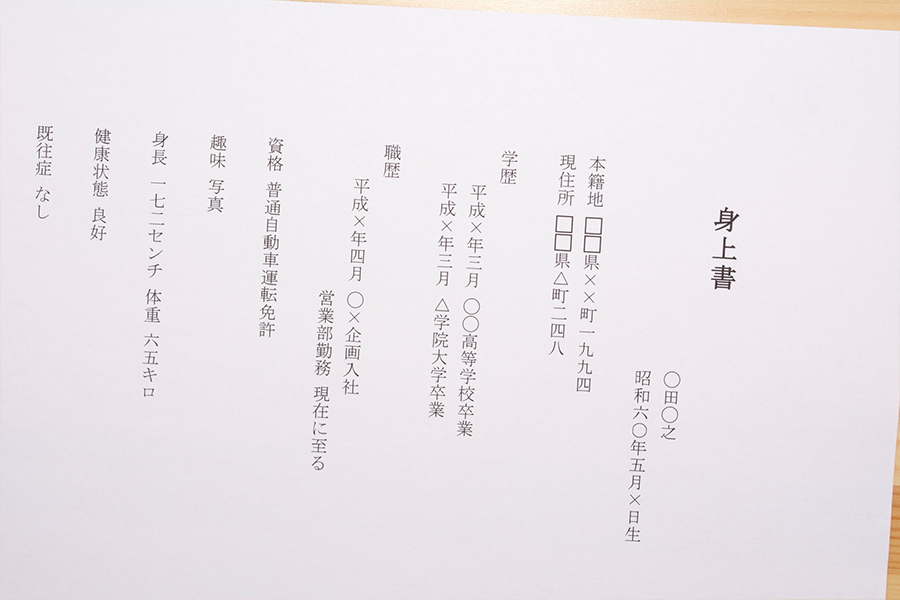 身上書
〇田〇之
昭和六〇年五月×日生
本籍地 □□県××町一九九四
現住所 □□県△町二四八
学歴
平成×年三月 〇〇高等学校卒業
平成×年三月 △学院大学卒業
職歴
平成×年四月 〇×企画入社
営業部勤務 現在に至る
資格 普通自動車運転免許
趣味 写真
身長 一七二センチ 体重 六五キロ
健康状態 良好
既往症 なし